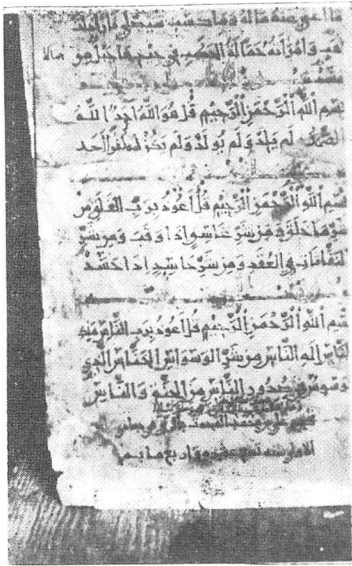 ما اغنى عنه ماله وما كسب سيصلى نارا ذات
لهب وامراته حمالة الحطب في جيدها حبل من
بسم الله الرحمن الرحيم قل هو الله احد الله
الصمد لم يلد ولم يولد ولم يكن له كفوا احد
بسم الله الرحمن الرحيم قل اعوذ برب الفلق من
شر ما خلق ومن شر غاسق اذا وقب ومن شر
النفاثات في العقد ومن شر حاسد اذا حسد
بسم الله الرحمن الرحيم قل اعوذ برب الناس ملك
الناس اله الناس من شر الوسواس الخناس الذي
يوسوس في صدور الناس من الجنة والناس